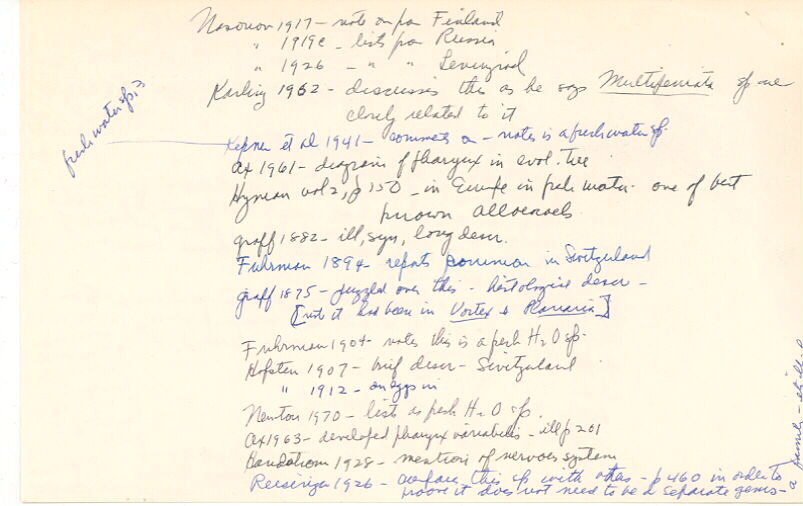 Nasonov 1917 - note on from Finland
" 1919c - lists from Russia
" 1926 - " " Leningrad
Karling 1962 - discusses this as he says Multipeniata sp are
closely related to it
fresh water sp.
Kepner et al 1941 - comments on - notes is a fresh water sp.
Ax 1961 - diagram of pharynx in evol. tree
Hyman vol 2, p 150 - in Europe in fresh water - one of best
known alloeocoels
Graff 1882 - ill, syn, long descr.
Fuhrman 1894 - reports common in Switzerland
Graff 1875 - puzzled over this - histological descr -
[note it had been in Vortex & Planaria]
Fuhrman 1904 - notes this is a fresh H2O sp.
Hofsten 1907 - brief descr - Switzerland
" 1912 - on eggs in
Newton 1970 - lists as fresh H2O sp.
Ax 1963 - developed pharynx variabilis - ill p 201
1928 - mentions of nervous system
Reisinger 1926 - compares this sp with others - p 460 in order to
prove it does not need to be a separate genus -
a family -